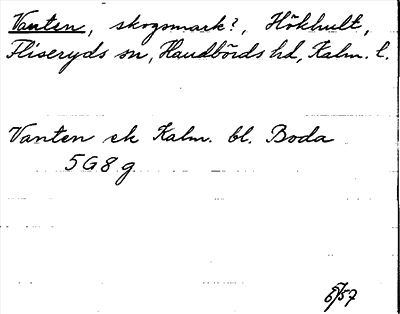 Vanten, skogsmark?, Hökhult,
Fliseryds sn, Handbörds hd, Kalm. l.
Vanten ek Kalm. bl. Boda
5G8g